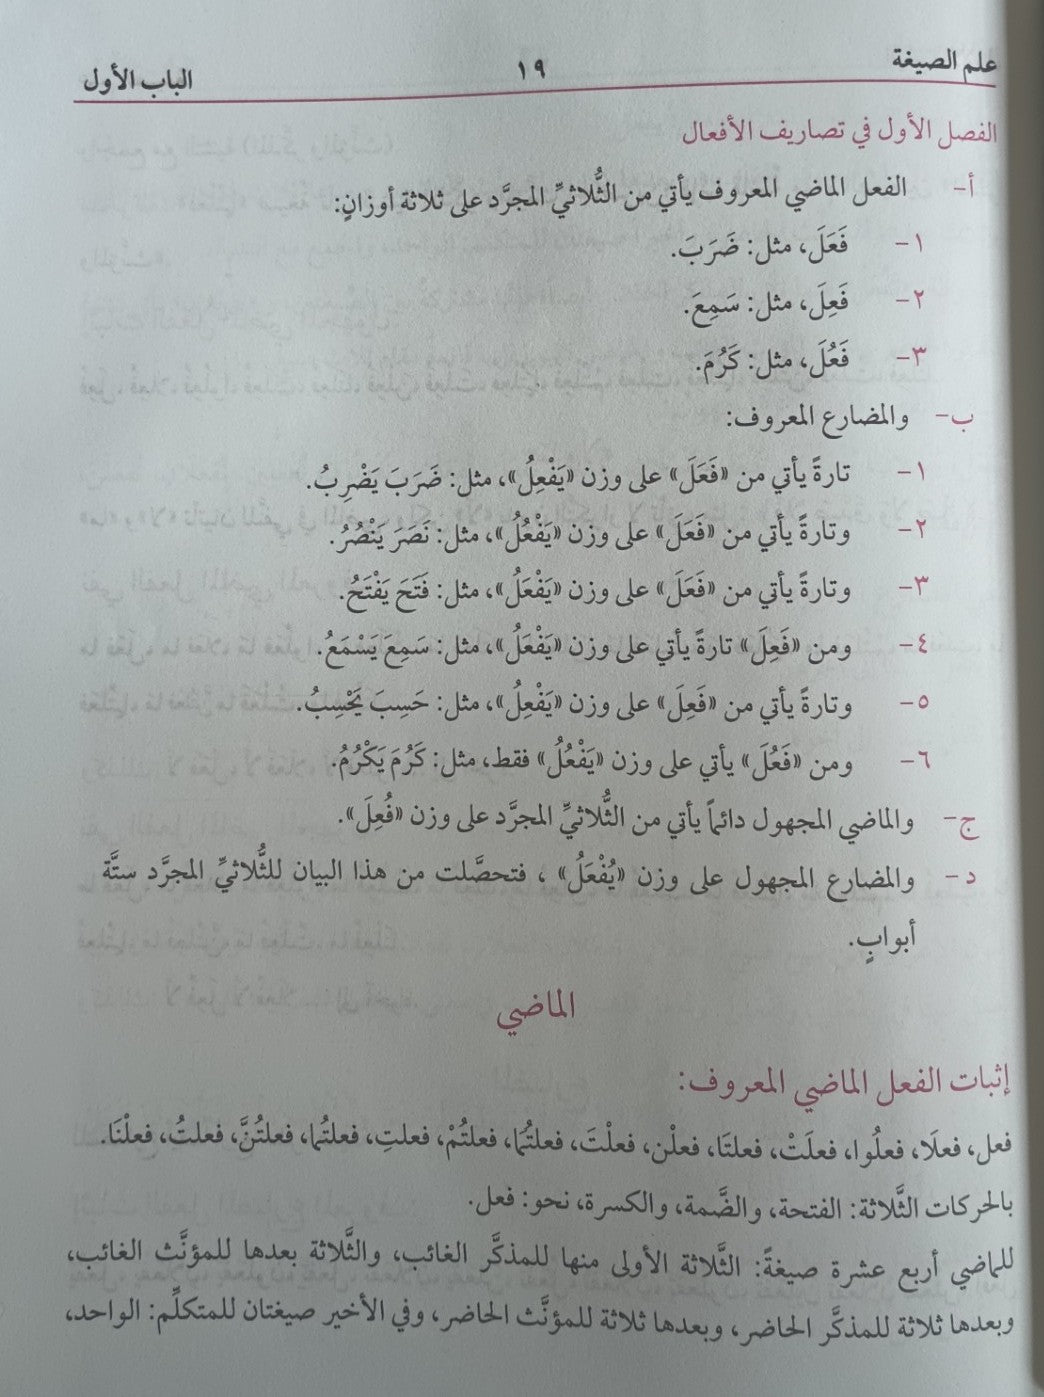 علم الصيغة ١٩ الباب الأول
الفصل الأول في تصاريف الأفعال
أ- الفعل الماضي المعروف يأتي من الثُّلاثيِّ المجرَّد على ثلاثة أوزانٍ:
١- فَعَلَ، مثل: ضَرَبَ.
٢- فَعِلَ، مثل: سَمِعَ.
٣- فَعُلَ، مثل: كَرُمَ.
ب- والمضارع المعروف:
١- تارةً يأتي من «فَعَلَ» على وزن «يَفْعِلُ»، مثل: ضَرَبَ يَضْرِبُ.
٢- وتارةً يأتي من «فَعَلَ» على وزن «يَفْعُلُ»، مثل: نَصَرَ يَنْصُرُ.
٣- وتارةً يأتي من «فَعَلَ» على وزن «يَفْعَلُ»، مثل: فَتَحَ يَفْتَحُ.
٤- ومن «فَعِلَ» تارةً يأتي على وزن «يَفْعَلُ»، مثل: سَمِعَ يَسْمَعُ.
٥- وتارةً يأتي من «فَعِلَ» على وزن «يَفْعِلُ»، مثل: حَسِبَ يَحْسِبُ.
٦- ومن «فَعُلَ» يأتي على وزن «يَفْعُلُ» فقط، مثل: كَرُمَ يَكْرُمُ.
ج- والماضي المجهول دائماً يأتي من الثُّلاثيِّ المجرَّد على وزن «فُعِلَ».
د- والمضارع المجهول على وزن «يُفْعَلُ» ، فتحصَّلت من هذا البيان للثُّلاثيِّ المجرَّد ستَّة
أبوابٍ.
الماضي
إثبات الفعل الماضي المعروف:
فعل، فعلَا، فعلُوا، فعلَتْ، فعلتَا، فعلْن، فعلْتَ، فعلتُمَا، فعلتُمْ، فعلتِ، فعلتُما، فعلتُنَّ، فعلتُ، فعلْنَا.
بالحركات الثَّلاثة: الفتحة، والضَّمة، والكسرة، نحو: فعل.
للماضي أربع عشرة صيغةً: الثَّلاثة الأولى منها للمذكَّر الغائب، والثَّلاثة بعدها للمؤنَّث الغائب،
وبعدها ثلاثة للمذكَّر الحاضر، وبعدها ثلاثة للمؤنَّث الحاضر، وفي الأخير صيغتان للمتكلِّم: الواحد،